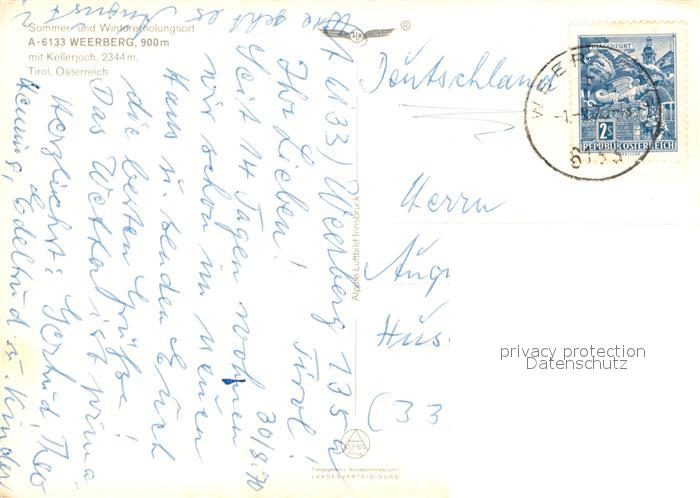 Sommer- und Wintererholungsort
A-6133 WEERBERG, 900 m
mit Kellerjoch, 2344 m,
Tirol, Österreich
®
A 6133) Weerberg 135
Tirol!
30/8.70
Ihr Lieben!
Seit 14 Tagen wohnen
wir schon im neuen
Haus u. senden Euch
die besten Grüße!
Das Wetter ist prima
Herzlichst: Gertrud, Theo
Henning, Edeltrud u. Kinder
Wie geht es
August
Alpine Luftbild Innsbruck
Freigegeben v. Bundesministerium f.
LANDESVERTEIDIGUNG
Deutschland
Herrn
Aug
Hus
(33
WEERBERG
6133
KLAGENFURT
2S
REPUBLIK ÖSTERREICH
privacy protection
Datenschutz